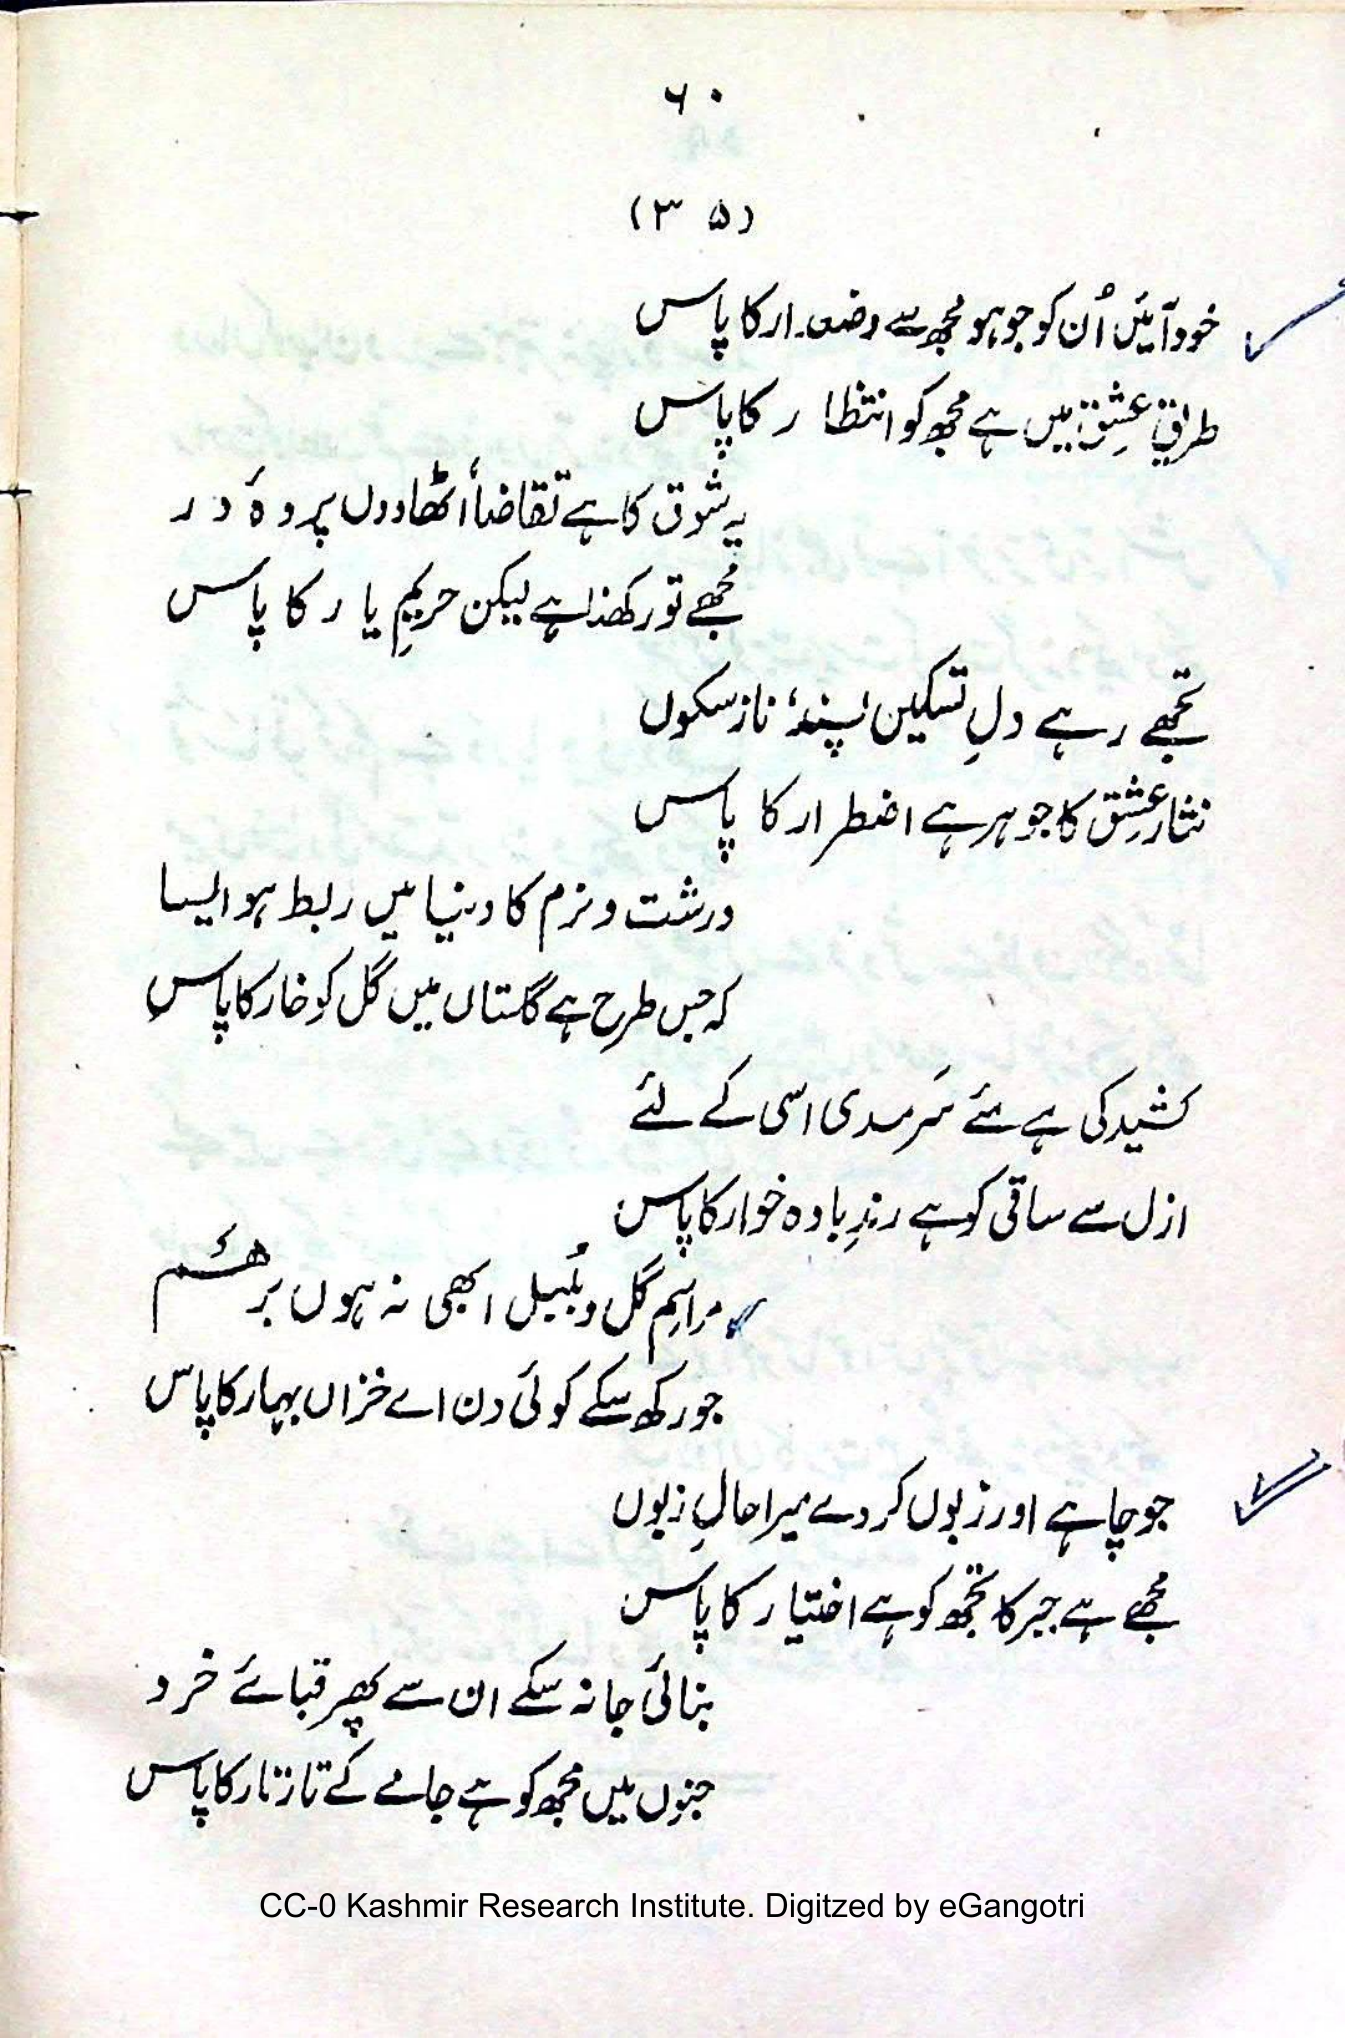 ۶۰
(۳۵)
خود آئیں اُن کو جو ہو مجھ سے وضعدار کا پاس
طریقِ عشق میں ہے مجھ کو انتظار کا پاس
یہ شوق کا ہے تقاضا اُٹھا دوں پردۂ در
مجھے تو رکھنا ہے لیکن حریمِ یار کا پاس
تجھے رہے دلِ تسکیں پسند، ناز سکوں
نثار عشق کا جوہر ہے اضطرار کا پاس
درشت و نرم کا دنیا میں ربط ہو ایسا
کہ جس طرح ہے گلستاں میں گل کو خار کا پاس
کشید کی ہے مئے سَرمدی اسی کے لئے
ازل سے ساقی کو ہے رندِ بادہ خوار کا پاس
مراسمِ گل و بُلبل ابھی نہ ہوں برھم
جو رکھ سکے کوئی دن اے خزاں بہار کا پاس
جو چاہے اور زبوں کر دے میرا حالِ زبوں
مجھے ہے جبر کا تجھ کو ہے اختیار کا پاس
بنائی جا نہ سکے ان سے پھر قبائے خرد
جنوں میں مجھ کو ہے جامے کے تار تار کا پاس
CC-0 Kashmir Research Institute. Digitzed by eGangotri